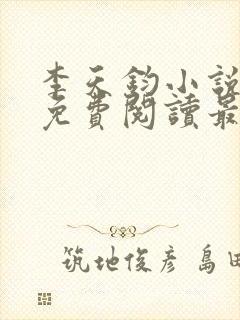 李天鈞小說
免費閱讀最
筑地俊彥 島田